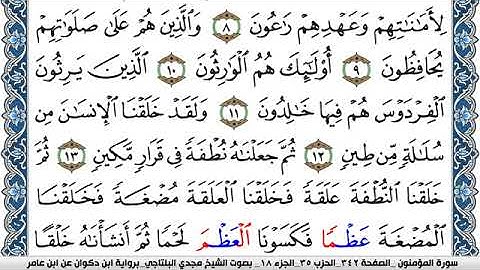 لِأَمَـٰنَـٰتِهِمْ وَعَهْدِهِمْ رَٰعُونَ ٨ وَٱلَّذِينَ هُمْ عَلَىٰ صَلَوَٰتِهِمْ
يُحَافِظُونَ ٩ أُو۟لَـٰٓئِكَ هُمُ ٱلْوَٰرِثُونَ ١٠ ٱلَّذِينَ يَرِثُونَ
ٱلْفِرْدَوْسَ هُمْ فِيهَا خَـٰلِدُونَ ١١ وَلَقَدْ خَلَقْنَا ٱلْإِنسَـٰنَ مِن
سُلَـٰلَةٍ مِّن طِينٍ ١٢ ثُمَّ جَعَلْنَـٰهُ نُطْفَةً فِى قَرَارٍ مَّكِينٍ ١٣ ثُمَّ
خَلَقْنَا ٱلنُّطْفَةَ عَلَقَةً فَخَلَقْنَا ٱلْعَلَقَةَ مُضْغَةً فَخَلَقْنَا
ٱلْمُضْغَةَ عِظَـٰمًا فَكَسَوْنَا ٱلْعِظَـٰمَ لَحْمًا ثُمَّ أَنشَأْنَـٰهُ خَلْقًا
سورة المؤمنون _ الصفحة ٣٤٢_الحزب ٣٥_الجزء ١٨_ بصوت الشيخ مجدي البلتاجي_برواية ابن ذكوان عن ابن عامر